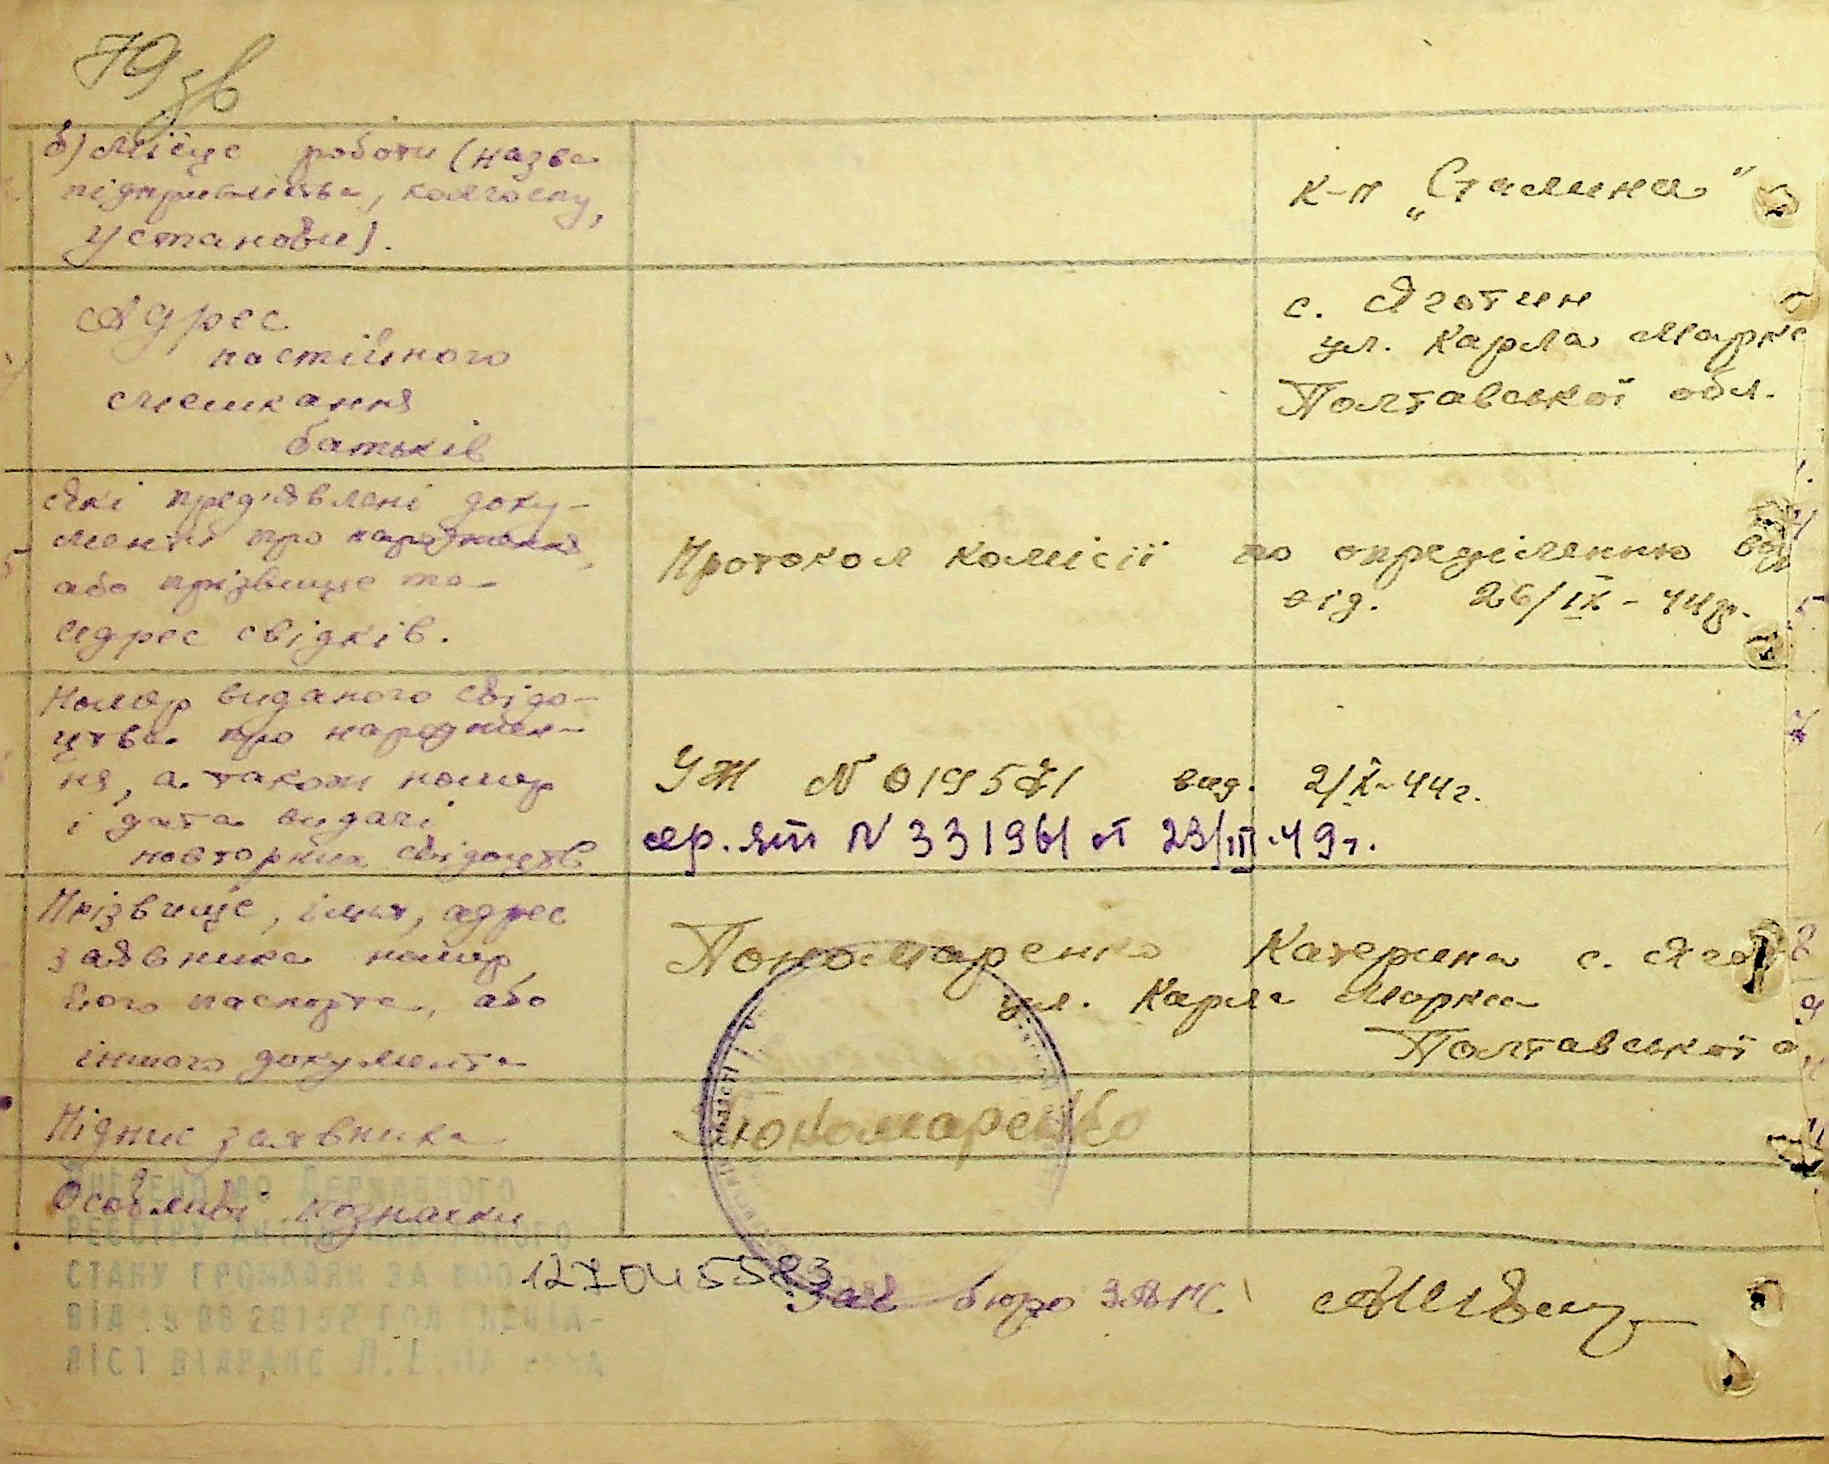 79 зв
б) Місце роботи (назва
підприємства, колгоспу,
установи).
к-п „Сталина"
Адрес
постійного
мешкання
батьків
с. Яготин
ул. Карла Маркс
Полтавської обл.
Які пред'явлені доку-
менти про народження,
або прізвище та
адрес свідків.
Протокол комісії по определенню
від. 26/IX-44р.
Номер виданого свідо-
цтва про народжен-
ня, а також номер
і дата видачі
повторних свідоцтв
УЖ N 019571 вид. 2/X-44г.
сер. ЯП N 331961 от 23/III-49г.
Прізвище, імя, адрес
заявника номер
його паспорта, або
іншого документа
Пономаренко Катерина с. Яго
ул. Карла Маркса
Полтавської о
Підпис заявника
Пономаренко
Особливі познаки
Внесено до Державного
реєстру актів
стану громадян за
127045583
Зав бюро ЗАГС